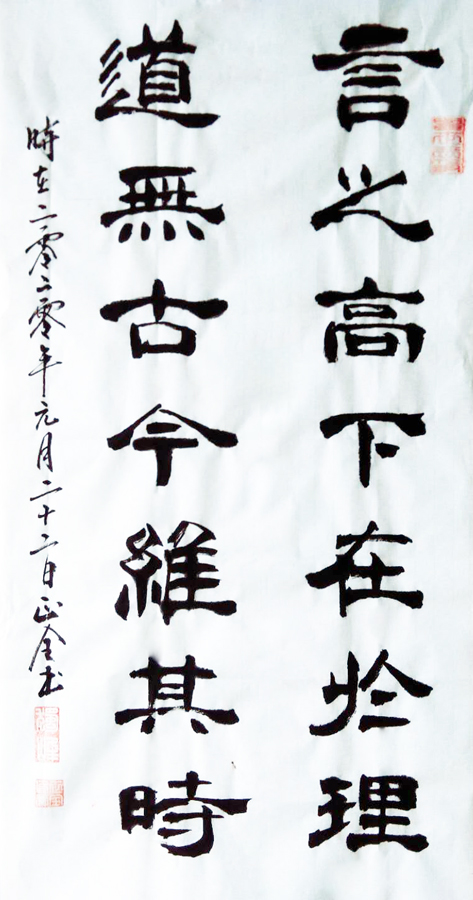 言之高下在於理
道無古今維其時
時在二零二零年元月二十二日正金书